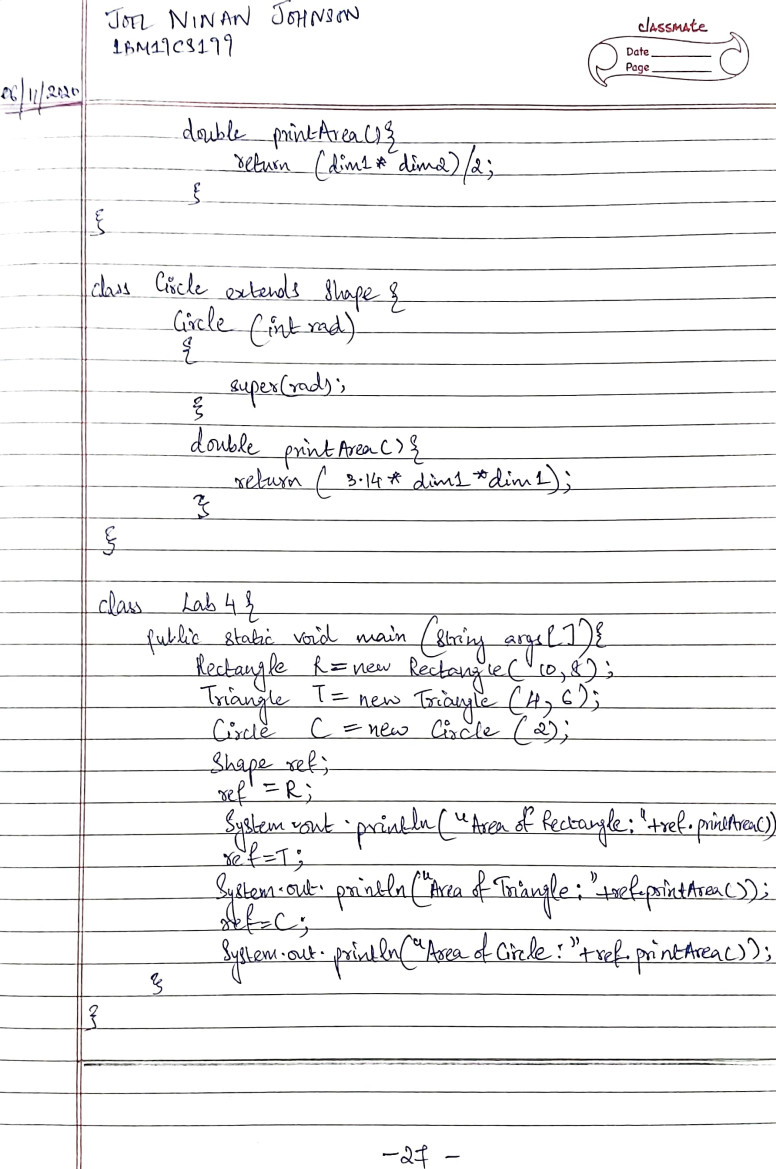 JOEL NINAN JOHNSON
1BM19CS199
classmate
Date
Page
06/11/2020
double printArea(){
return (dim1 * dim2)/2;
}
}
class Circle extends Shape {
Circle (int rad)
{
super(rad);
}
double printArea(){
return ( 3.14 * dim1 * dim1);
}
}
class Lab 4 {
public static void main (String args[]){
Rectangle R = new Rectangle( 10,8);
Triangle T = new Triangle (4, 6);
Circle C = new Circle (2);
Shape ref;
ref = R;
System.out.println("Area of Rectangle: "+ref.printArea())
ref=T;
System.out.println("Area of Triangle: "+ref.printArea());
ref=C;
System.out.println("Area of Circle: "+ref.printArea());
}
}
-27-